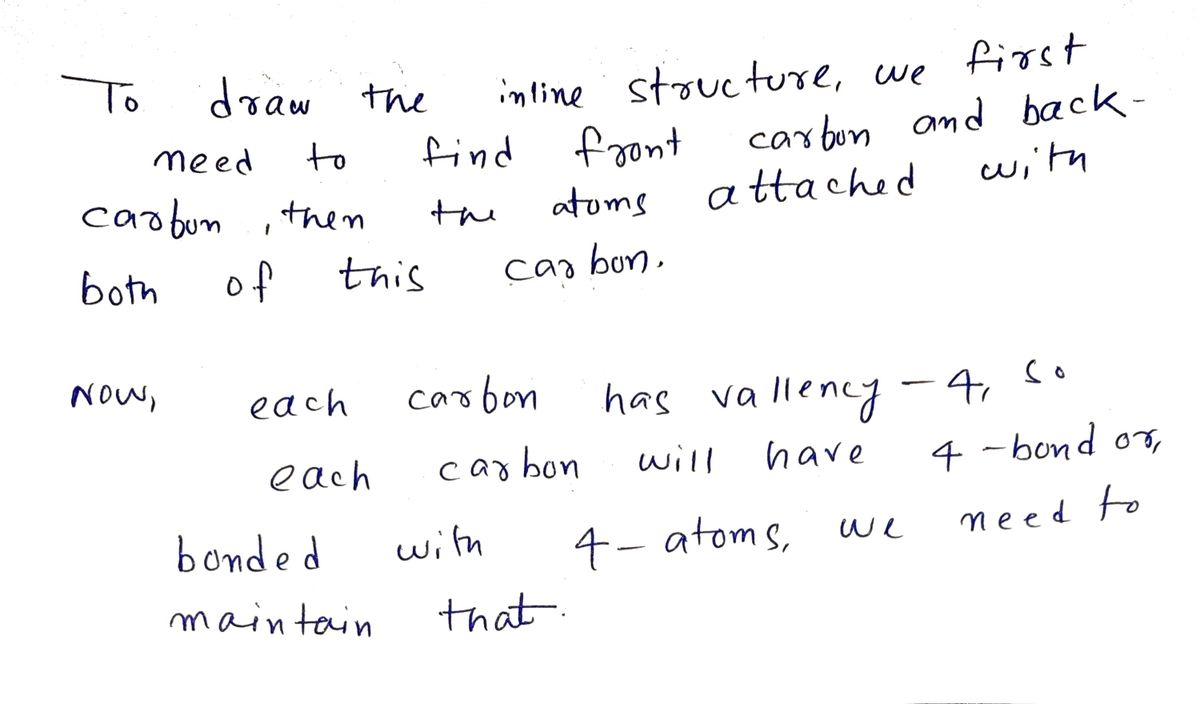 To draw the inline structure, we first
need to find front carbon and back-
carbon, then the atoms attached with
both of this carbon.
Now, each carbon has vallency - 4, so
each carbon will have 4-bond or,
bonded with 4-atoms, we need to
maintain that.